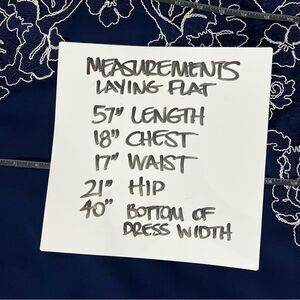 MEASUREMENTS
LAYING FLAT
57" LENGTH
18" CHEST
17" WAIST
21" HIP
40" BOTTOM OF
DRESS WIDTH